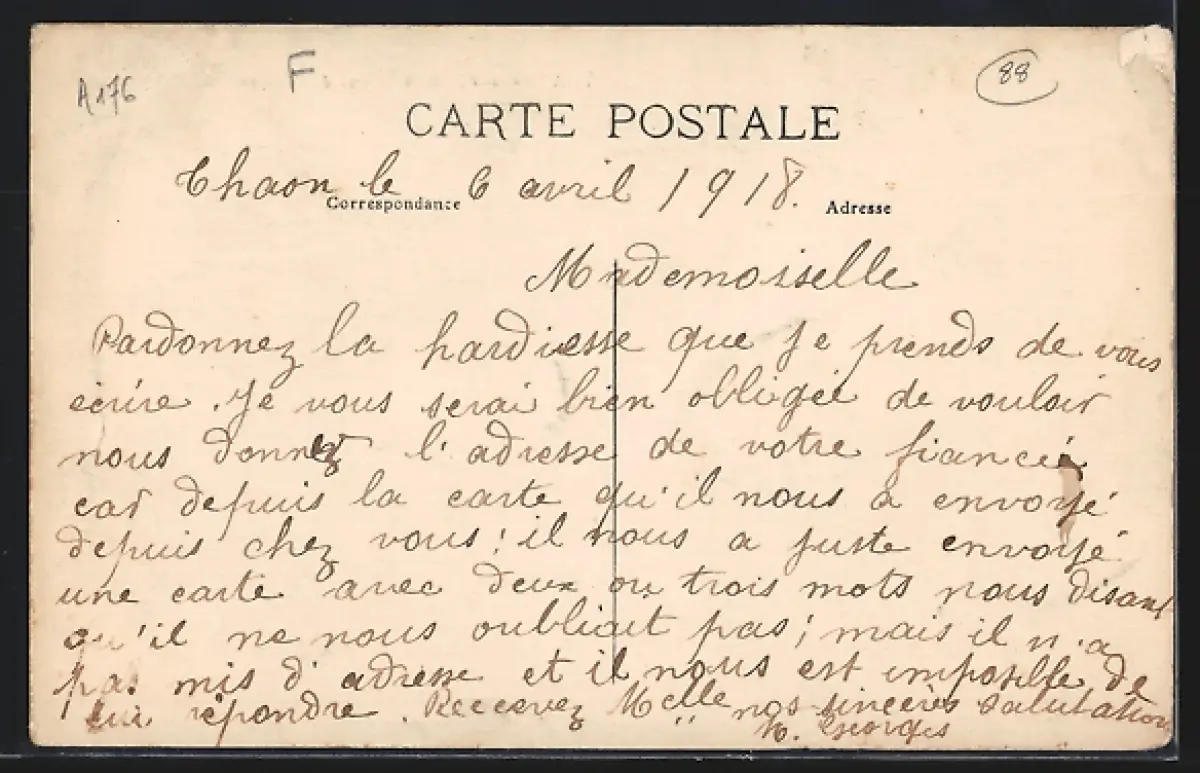 A176
F
88
CARTE POSTALE
Thaon le 6 avril 1918.
Correspondance
Adresse
Mademoiselle
Pardonnez la hardiesse que je prends de vous
écrire. Je vous serai bien obligée de vouloir
nous donnez l'adresse de votre fiancée
car depuis la carte qu'il nous a envoyé
depuis chez vous; il nous a juste envoyé
une carte avec deux ou trois mots nous disant
qu'il ne nous oubliait pas; mais il n'a
pas mis d'adresse et il nous est impossible de
lui répondre. Recevez Melle nos sincères salutations
Georges